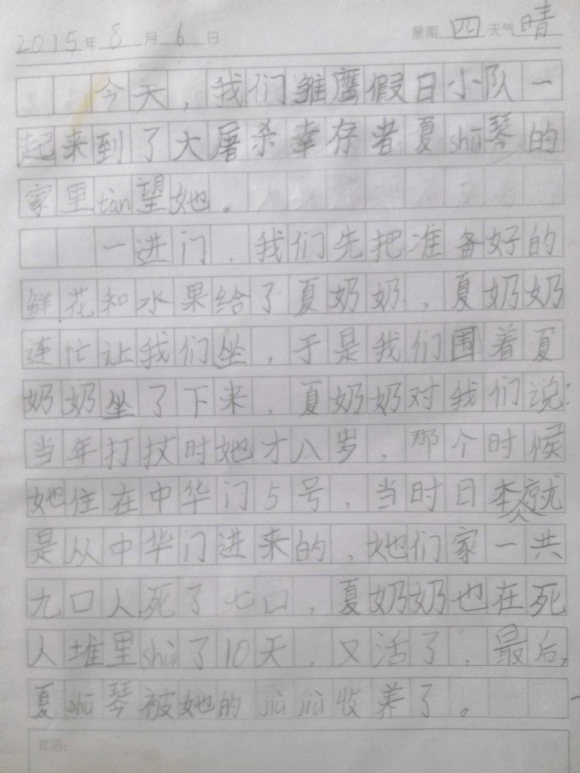 2015年8月6日 星期四 天气晴
今天，我们雏鹰假日小队一
起来到了大屠杀幸存者夏shū琴的
家里tàn望她。
一进门，我们先把准备好的
鲜花和水果给了夏奶奶，夏奶奶
连忙让我们坐，于是我们围着夏
奶奶坐了下来，夏奶奶对我们说：
当年打扙时她才八岁，那个时候
她住在中华门5号，当时日本就
是从中华门进来的，她们家一共
九口人死了七口，夏奶奶也在死
人堆里shuì了10天，又活了，最后，
夏shū琴被她的jiù jiù收养了。